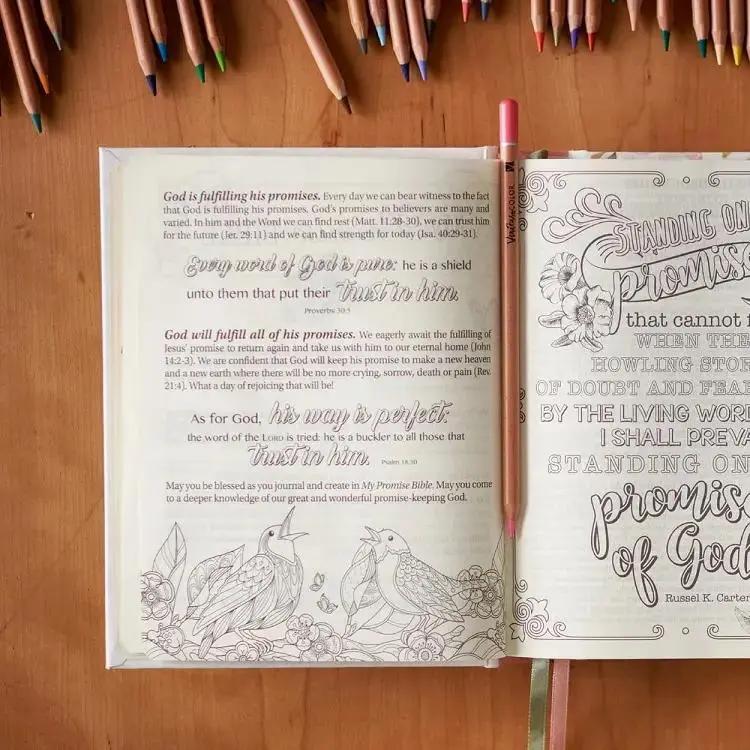 God is fulfilling his promises. Every day we can bear witness to the fact
that God is fulfilling his promises. God's promises to believers are many and
varied. In him and the Word we can find rest (Matt. 11:28-30), we can trust him
for the future (Jer. 29:11) and we can find strength for today (Isa. 40:29-31).
Every word of God is pure: he is a shield
unto them that put their trust in him.
Proverbs 30:5
God will fulfill all of his promises. We eagerly await the fulfilling of
Jesus' promise to return again and take us with him to our eternal home (John
14:2-3). We are confident that God will keep his promise to make a new heaven
and a new earth where there will be no more crying, sorrow, death or pain (Rev.
21:4). What a day of rejoicing that will be!
As for God, his way is perfect:
the word of the LORD is tried: he is a buckler to all those that
trust in him. Psalm 18:30
May you be blessed as you journal and create in My Promise Bible. May you come
to a deeper knowledge of our great and wonderful promise-keeping God.
Verithin COLOR
STANDING ON
promise
that cannot f
WHEN THE
HOWLING STOR
OF DOUBT AND FEAR
BY THE LIVING WORD
I SHALL PREVA
STANDING ON
promise
of God
Russel K. Carter